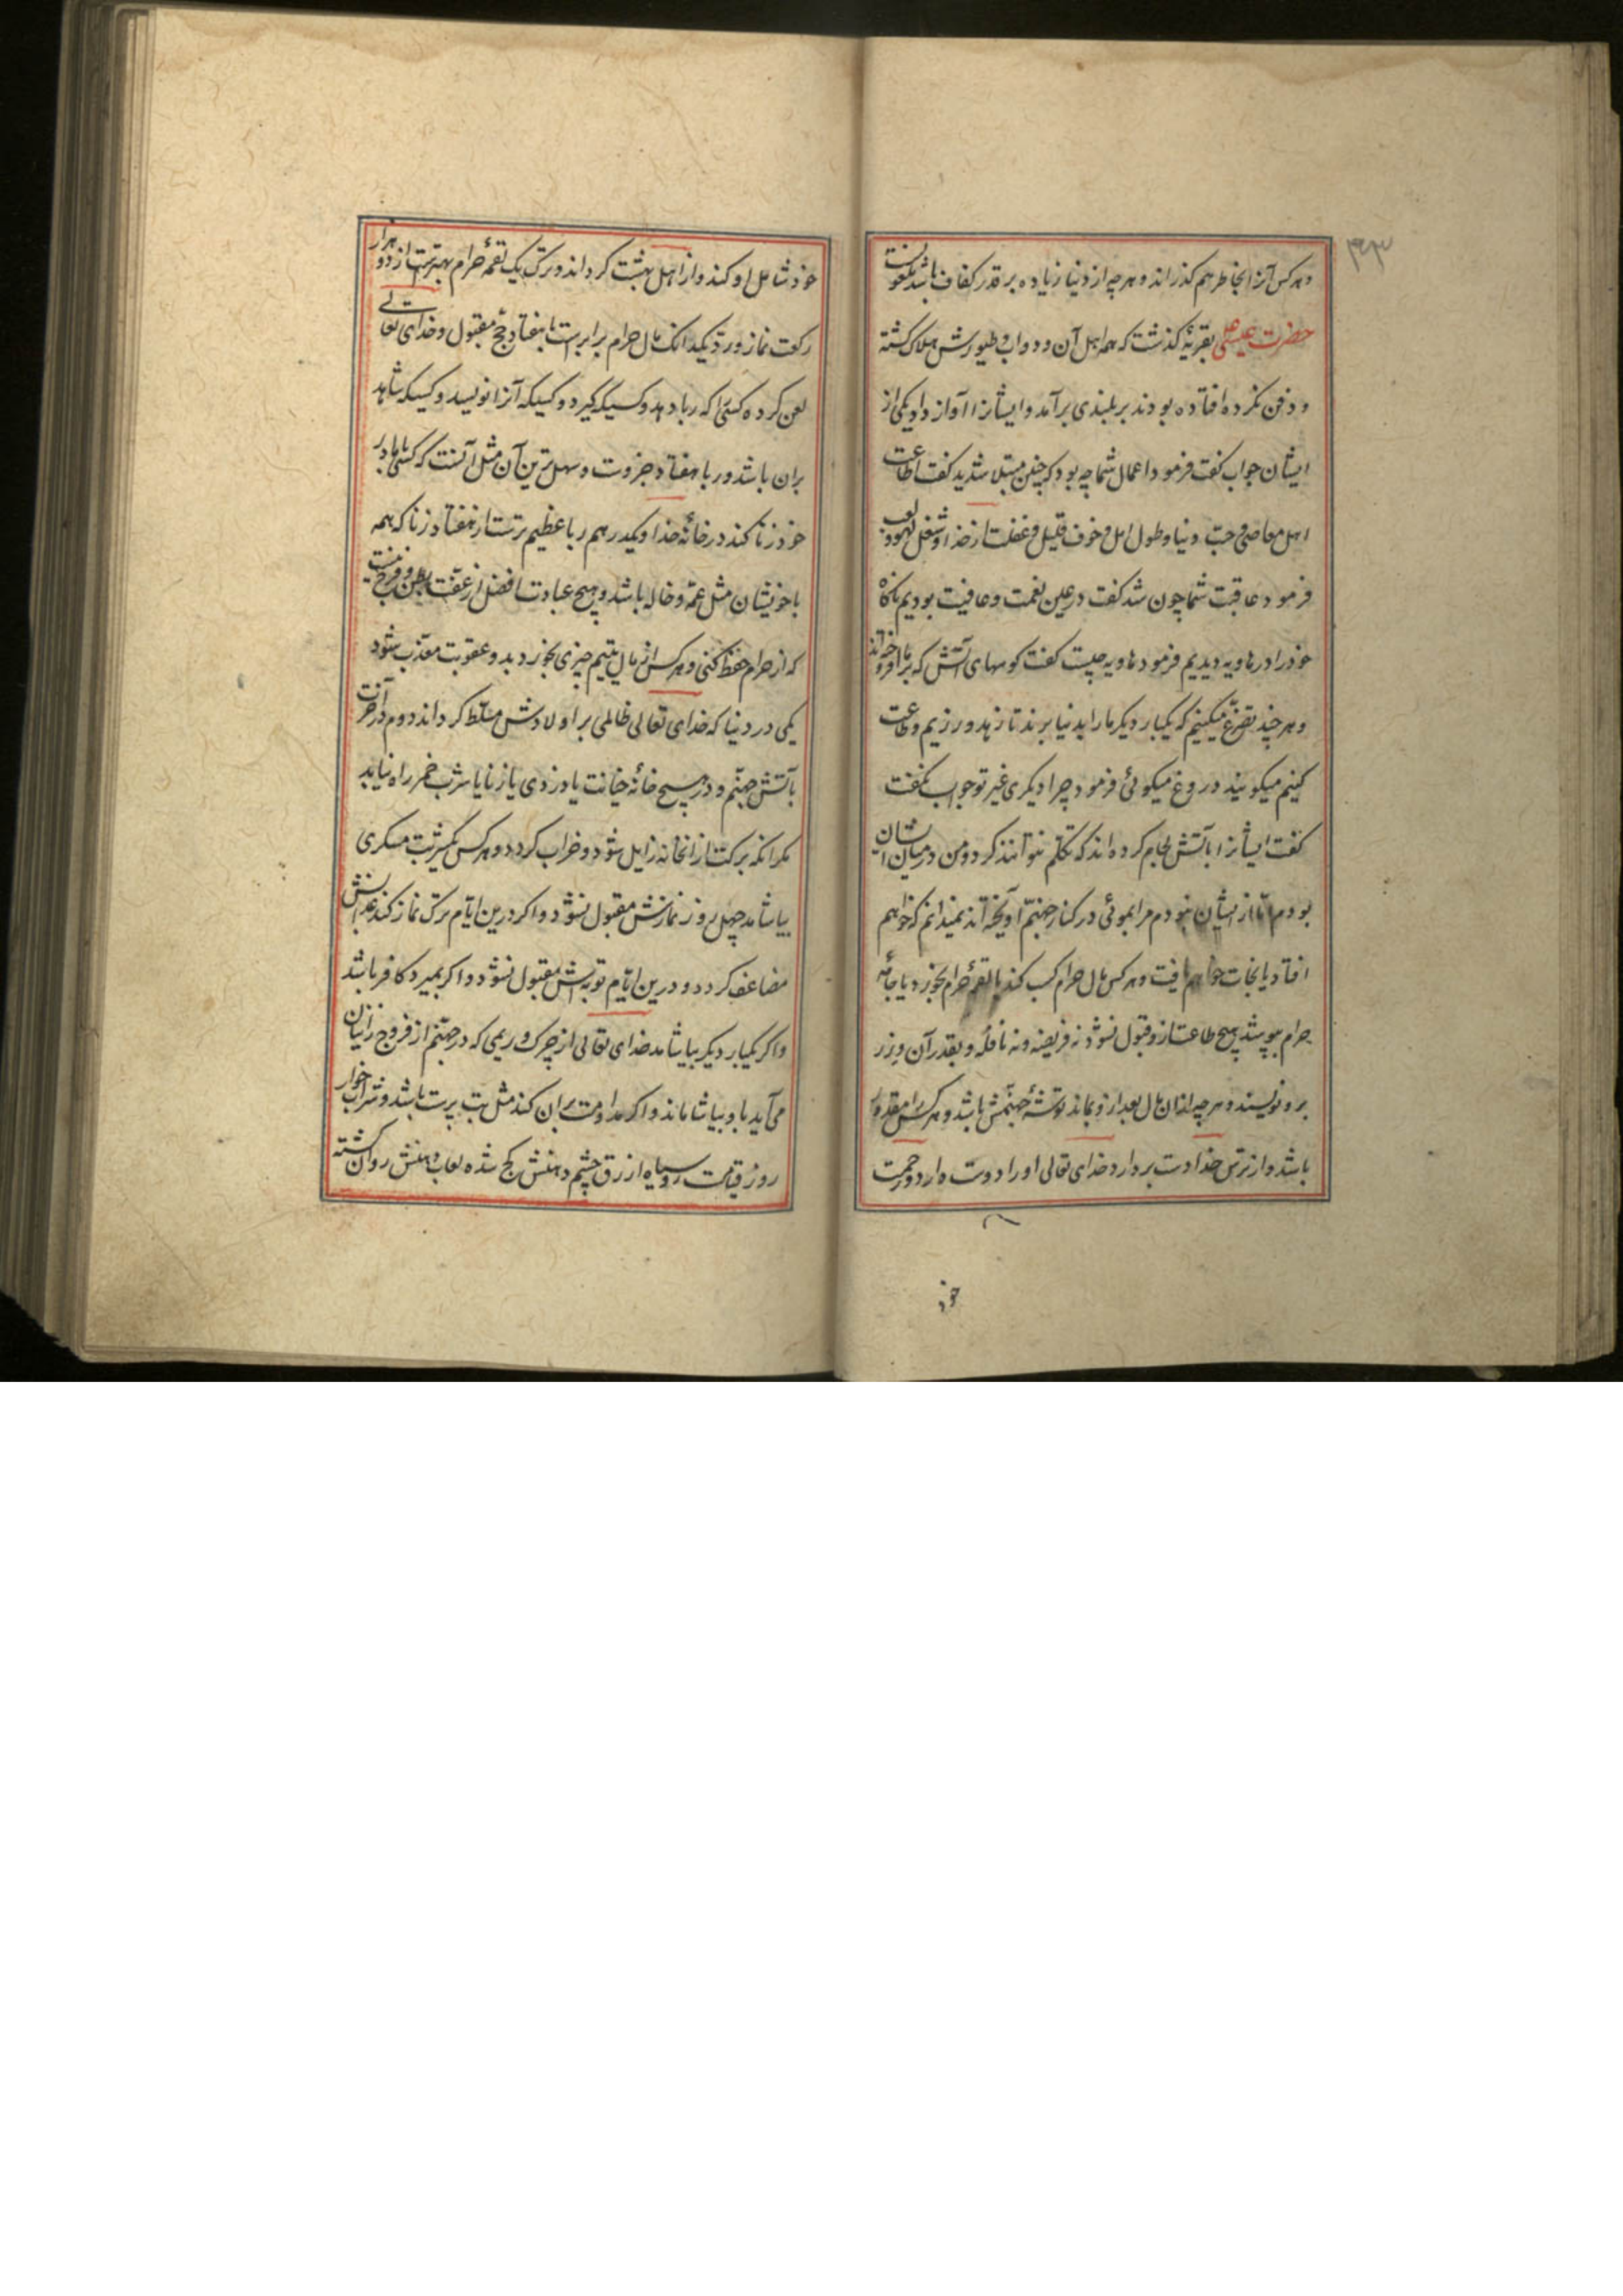 ۳۹۳
و هر کس آنرا بخاطر هم گذراند و هر چه از دنیا زیاده بر قدر کفاف باشد ملعونست
حضرت عیسی بقریهٔ گذشت که همه اهل آن و دواب و طیورش هلاک گشته
و دفن نکرده افتاده بودند بر بلندی برآمد و ایشانرا آواز داد یکی از
ایشان جواب گفت فرمود اعمال شما چه بود که چنین مبتلا شدید گفت اطاعت
اهل معاصی و حب دنیا و طول امل و خوف قلیل و غفلت از خدا و شغل لهو و لعب
فرمود عاقبت شما چون شد گفت در عین نعمت و عافیت بودیم ناگاه
خود را در هاویه دیدیم فرمود هاویه چیست گفت کوههای آتش که بر ما افروخته‌اند
و هر چند تضرع میکنیم که یکبار دیگر ما را بدنیا برند تا زهد ورزیم و طاعت
کنیم میگویند دروغ میگوئی فرمود چرا دیگری غیر تو جواب نگفت
گفت ایشانرا بآتش لجام کرده‌اند که تکلم نتوانند کرد و من در میان ایشان
بودم اما از ایشان نبودم مرا بموئی در کنار جهنم آویخته‌اند نمیدانم که خواهم
افتاد یا نجات خواهم یافت و هر کس مال حرام کسب کند یا لقمهٔ حرام بخورد یا جامهٔ
حرام بپوشد هیچ طاعت ازو قبول نشود نه فریضه و نه نافله و بقدر آن وزر
برو نویسند و هر چه از ان مال بعد ازو بماند توشهٔ جهنمش باشد و هر کس را مقدور
باشد و از ترس خدا دست بردارد خدای تعالی او را دوست دارد و رحمت
خود
خود شامل او کند و از اهل بهشت گرداند و ترک یک لقمهٔ حرام بهترست از دو هزار
رکعت نماز و رد یکدانک مال حرام برابرست با هفتاد حج مقبول و خدای تعالی
لعن کرده کسی را که ربا دهد و کسیکه گیرد و کسیکه آنرا نویسد و کسیکه شاهد
بران باشد و ربا هفتاد جزوست و سهل‌ترین آن مثل آنست که کسی با مادر
خود زنا کند در خانهٔ خدا و یکدرهم ربا عظیم‌ترست از هفتاد زنا که همه
با خویشان مثل عمه و خاله باشد و هیچ عبادت افضل از عفت بطن و فرج نیست
که از حرام حفظ کنی و هر کس از مال یتیم چیزی بخورد بدو عقوبت معذب شود
یکی در دنیا که خدای تعالی ظالمی بر اولادش مسلط گرداند دوم در آخرت
بآتش جهنم و در هیچ خانه خیانت یا دزدی یا زنا یا شرب خمر راه نیابد
مگر انکه برکت از انخانه زایل شود و خراب گردد و هر کس یکشربت مسکری
بیاشامد چهل روز نمازش مقبول نشود و اگر درین ایام ترک نماز کند عذابش
مضاعف گردد و درین ایام توبه‌اش مقبول نشود و اگر بمیرد کافر باشد
و اگر یکبار دیگر بیاشامد خدای تعالی از چرک و ریمی که در جهنم از فروج زانیان
می‌آید باو بیاشاماند و اگر مداومت بران کند مثل بت پرست باشد و شراب خوار
روز قیامت روسیاه ازرق چشم دهنش کج شده لعاب دهنش روان گشته